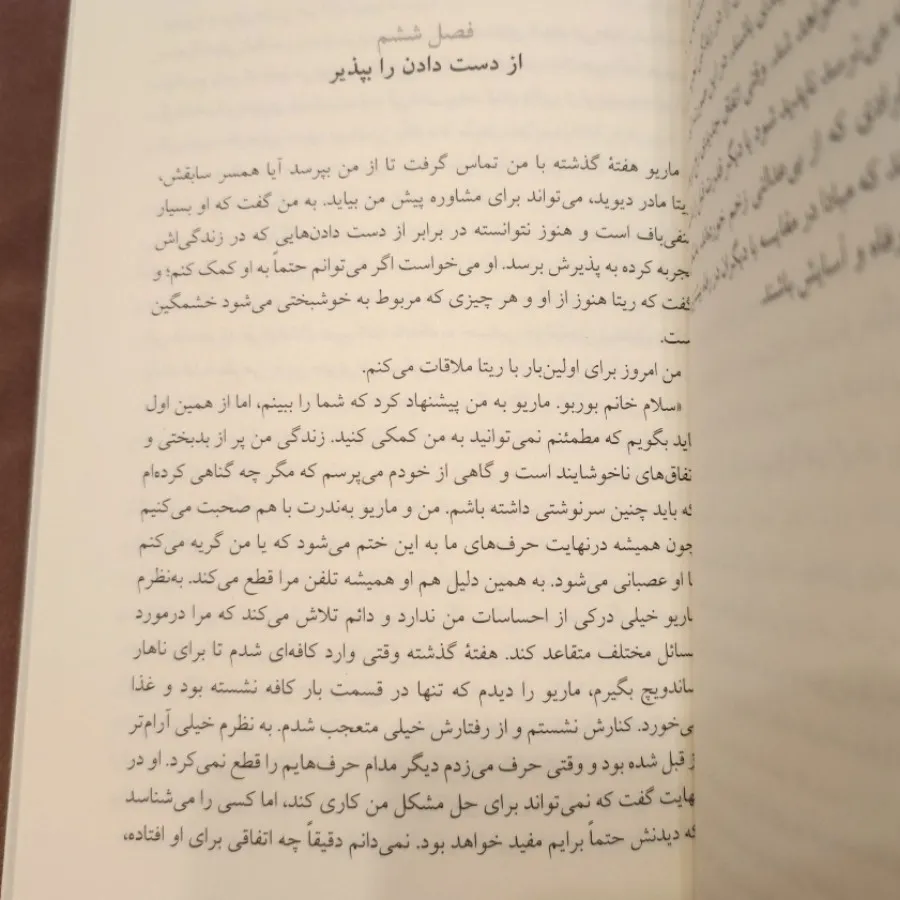 فصل ششم
از دست دادن را بپذیر
ماریو هفتهٔ گذشته با من تماس گرفت تا از من بپرسد آیا همسر سابقش،
یتا مادر دیوید، می‌تواند برای مشاوره پیش من بیاید. به من گفت که او بسیار
نفی‌باف است و هنوز نتوانسته در برابر از دست دادن‌هایی که در زندگی‌اش
جربه کرده به پذیرش برسد. او می‌خواست اگر می‌توانم حتماً به او کمک کنم؛ و
گفت که ریتا هنوز از او و هر چیزی که مربوط به خوشبختی می‌شود خشمگین
ست.
من امروز برای اولین‌بار با ریتا ملاقات می‌کنم.
«سلام خانم بوربو. ماریو به من پیشنهاد کرد که شما را ببینم، اما از همین اول
اید بگویم که مطمئنم نمی‌توانید به من کمکی کنید. زندگی من پر از بدبختی و
تفاق‌های ناخوشایند است و گاهی از خودم می‌پرسم که مگر چه گناهی کرده‌ام
که باید چنین سرنوشتی داشته باشم. من و ماریو به‌ندرت با هم صحبت می‌کنیم
چون همیشه درنهایت حرف‌های ما به این ختم می‌شود که یا من گریه می‌کنم
ا او عصبانی می‌شود. به همین دلیل هم او همیشه تلفن مرا قطع می‌کند. به‌نظرم
اریو خیلی درکی از احساسات من ندارد و دائم تلاش می‌کند که مرا درمورد
سائل مختلف متقاعد کند. هفتهٔ گذشته وقتی وارد کافه‌ای شدم تا برای ناهار
ساندویچ بگیرم، ماریو را دیدم که تنها در قسمت بار کافه نشسته بود و غذا
ی‌خورد. کنارش نشستم و از رفتارش خیلی متعجب شدم. به نظرم خیلی آرام‌تر
ز قبل شده بود و وقتی حرف می‌زدم دیگر مدام حرف‌هایم را قطع نمی‌کرد. او در
نهایت گفت که نمی‌تواند برای حل مشکل من کاری کند، اما کسی را می‌شناسد
که دیدنش حتماً برایم مفید خواهد بود. نمی‌دانم دقیقاً چه اتفاقی برای او افتاده،
که از بی‌عدالتی زخم
که مبادا در مقایسه با دیگران در
رفاه و آسایش باشند